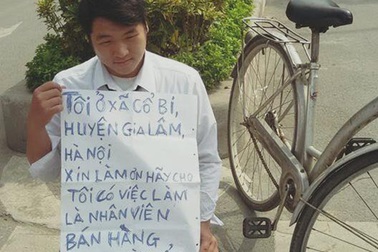 TÔI Ở XÃ CỔ BI,
HUYỆN GIA LÂM,
HÀ NỘI
XIN LÀM ƠN HÃY CHO
TÔI CÓ VIỆC LÀM
LÀ NHÂN VIÊN
BÁN HÀNG,